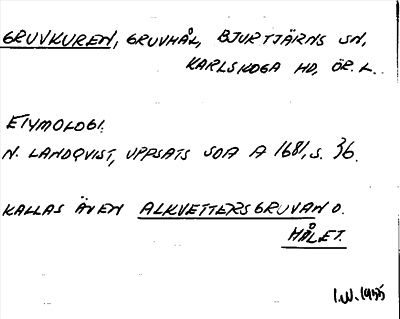 GRUVKUREN, GRUVHÅL, BJURTJÄRNS SN,
KARLSKOGA HD, ÖR. L.
ETYMOLOGI:
N. LANDQVIST, UPPSATS SOA A 1681, s. 36.
KALLAS ÄVEN ALKVETTERSGRUVAN O.
HÅLET.
I.W. 1955